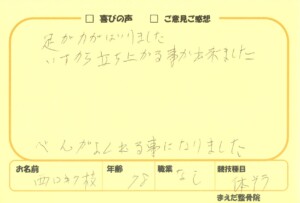 □ 喜びの声 □ ご意見ご感想
足が力がはいりました
いすから立ち上がる事が出来ました
べんがよく出る事になりました
お名前 年齢 78 職業 なし 競技種目
まえだ整骨院